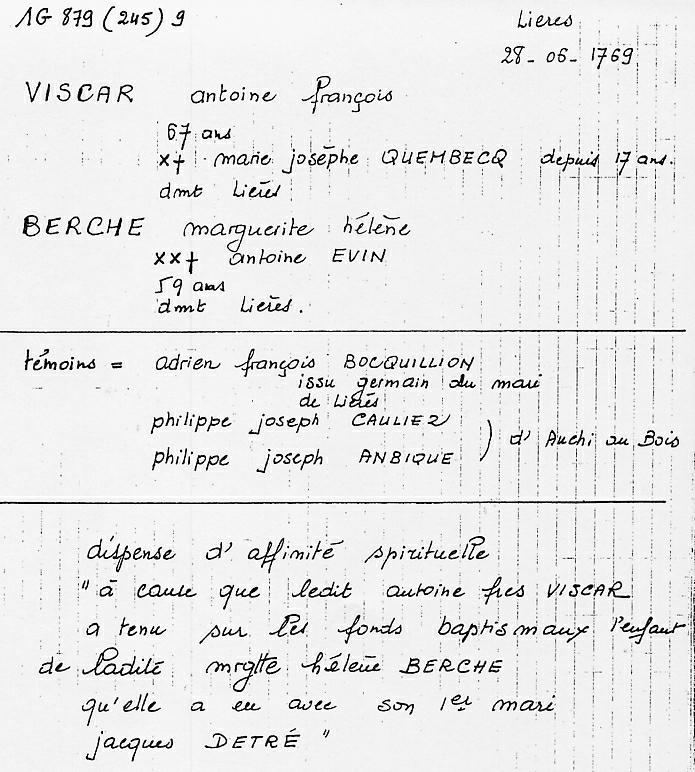 1G 879 (245) 9
Lieres
28-06-1769
VISCAR antoine françois
67 ans
x+ marie josèphe QUEMBECQ depuis 17 ans.
dmt Lières
BERCHE marguerite hélène
xx+ antoine EVIN
59 ans
dmt Lieres.
témoins = adrien françois BOCQUILLION
issu germain du mari
de Lières
philippe joseph CAULIEZ
philippe joseph ANBIQUE
) d' Auchi au Bois
dispense d' affinité spirituelle
" à cause que ledit antoine fres VISCAR
a tenu sur les fonds baptismaux l'enfant
de ladite mrgtte hélène BERCHE
qu'elle a eu avec son 1er mari
jacques DETRÉ "